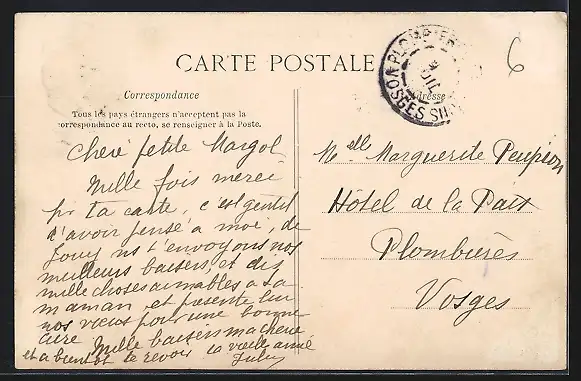 CARTE POSTALE
Correspondance
Tous les pays étrangers n'acceptent pas la
correspondance au recto, se renseigner à la Poste.
Adresse
PLOMBIER
VOSGES
6
Chère petite Margot
Mille fois merci
pr ta carte, c'est gentil
d'avoir pensé a moi, de
Jouy ns t'envoyons nos
meilleurs baisers, et dis
mille choses aimables a ta
maman, et présente lui
nos vœux pour une bonne
cure Mille baisers ma cherie
et a bientôt te revoir ta vieille amie
Melle Marguerite Peupion
Hôtel de la Paix
Plombières
Vosges